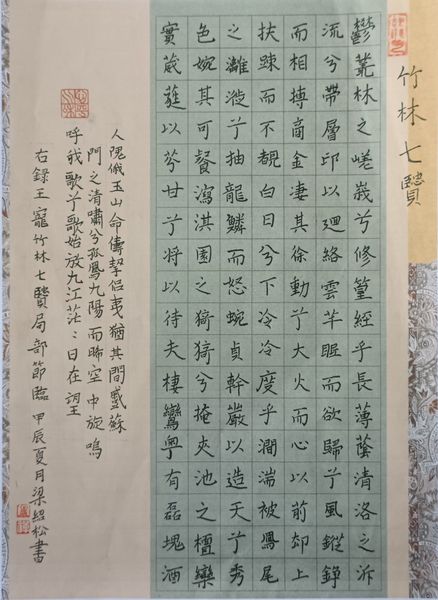 竹林七賢
鬱叢林之嵯峩兮修篁經乎長薄蔭清洛之泝
流兮帶層邱以迴絡雲芊眠而欲歸兮風鏦錚
而相摶商金凄其徐動兮大火而心以前却上
扶踈而不覩白日兮下冷冷度乎澗湍被鳳尾
之灕漇兮抽龍鱗而怒蜿貞幹巖以造天兮秀
色婉其可餐瀉淇園之猗猗兮掩夾池之檀欒
實葳蕤以芬甘兮將以待夫棲鸞粤有磊塊酒
人隗俄玉山命儔挈侣夷猶其間感蘇
門之清嘯兮孤鳳九陽而晞空中旋鳴
呼哉歌兮歌始放九江茫〻日在
右錄王寵竹林七賢局部節臨 甲辰夏月梁紹松書